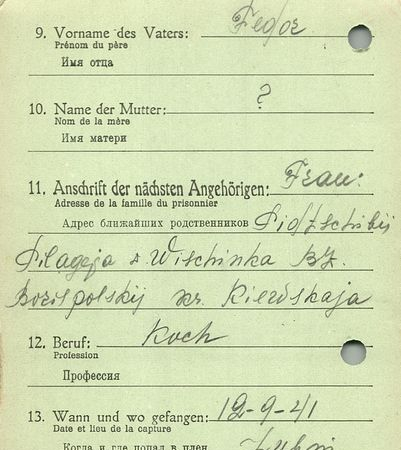 9. Vorname des Vaters: Fedor
Prénom du père
Имя отца
10. Name der Mutter: ?
Nom de la mère
Имя матери
11. Anschrift der nächsten Angehörigen: Frau:
Adresse de la famille du prisonnier
Адрес ближайших родственников
Pilageja d. Wischinka BZ.
Borispolskij kr. Kiewskaja
12. Beruf: Koch
Profession
Профессия
13. Wann und wo gefangen: 12-9-41
Date et lieu de la capture
Когда и где попал в плен